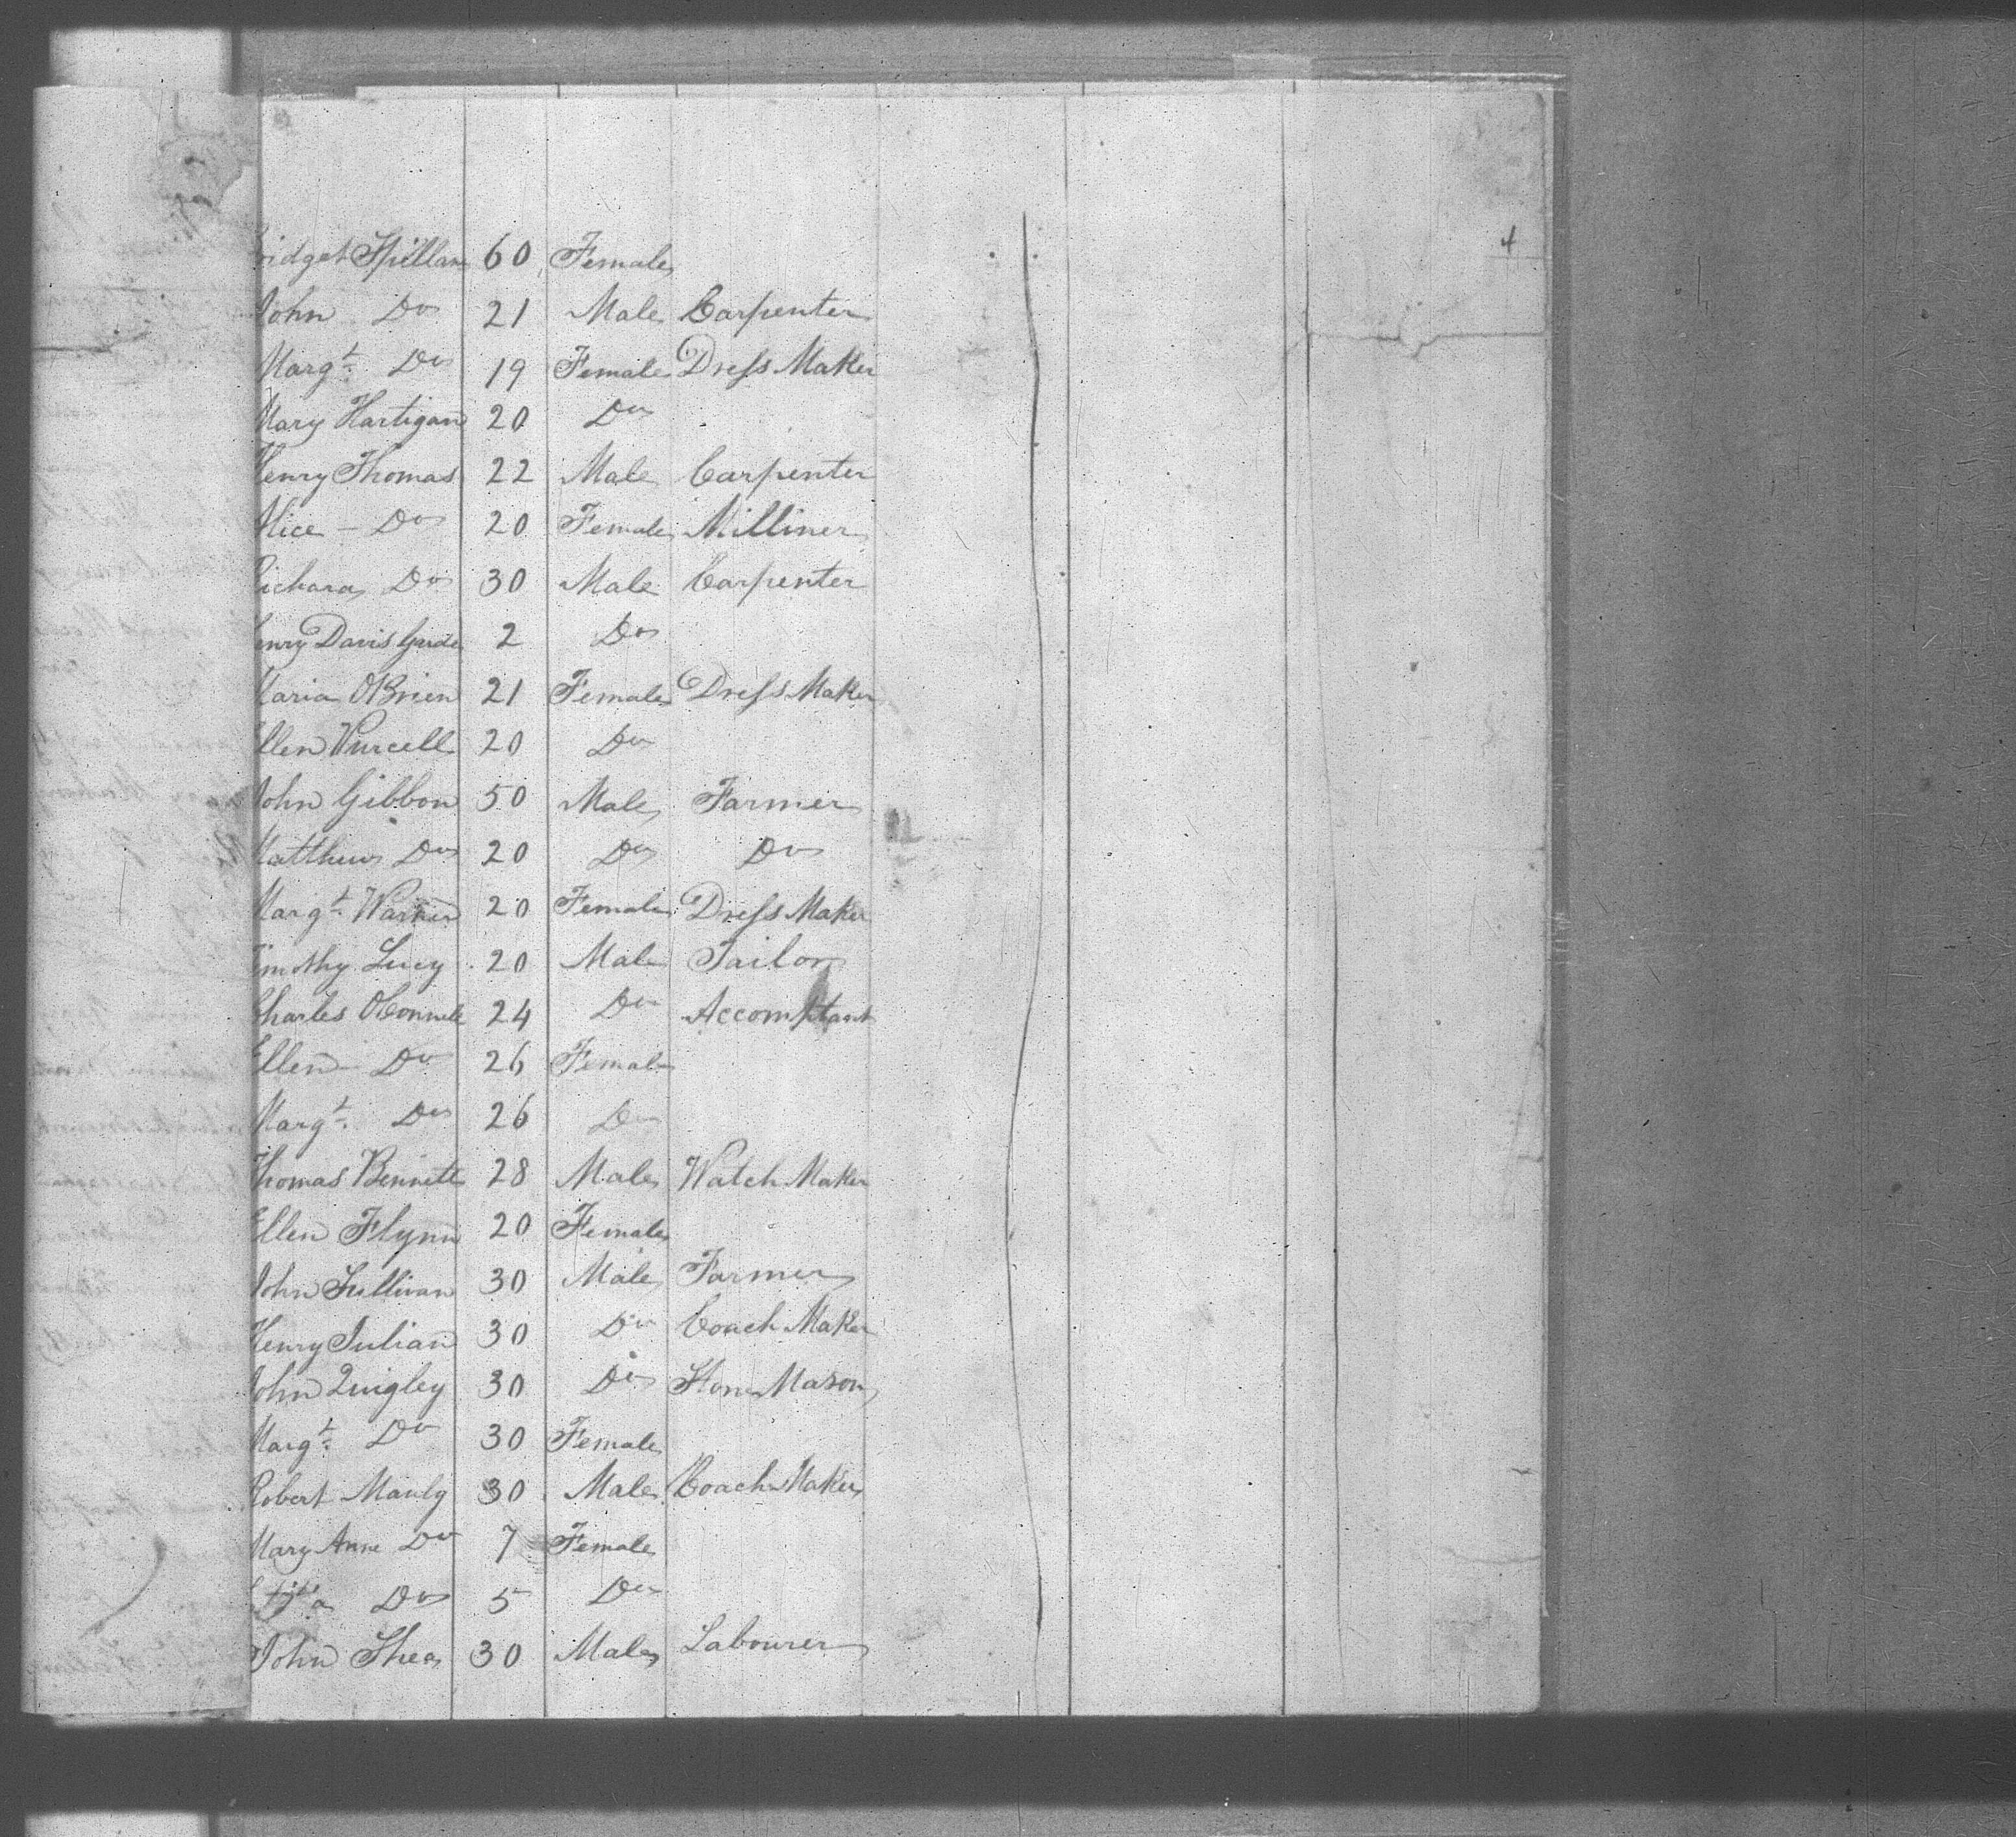 4
Bridget Spillane 60 Female
John Do 21 Male Carpenter
Margt. Do 19 Female Dress Maker
Mary Hartigan 20 Do
Henry Thomas 22 Male Carpenter
Alice - Do 20 Female Milliner
Richard Do 30 Male Carpenter
Henry Davis 2 Do
Maria OBrien 21 Female Dress Maker
Ellen Purcell 20 Do
John Gibbon 50 Male Farmer
Matthew Do 20 Do Do
Margt. Warner 20 Female Dress Maker
Timothy Lucy 20 Male Tailor
Charles OConnell 24 Do Accomptant
Ellen - Do 26 Female
Margt. Do 26 Do
Thomas Bennett 28 Male Watch Maker
Ellen Flynn 20 Female
John Sullivan 30 Male Farmer
Henry Julian 30 Do Coach Maker
John Quigley 30 Do Stone Mason
Margt. Do 30 Female
Robert Manly 30 Male Coach Maker
Mary Anne Do 7 Female
Do 5 Do
John Shea 30 Male Labourer